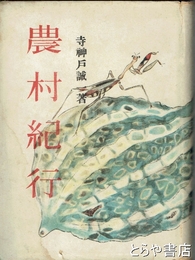 農村紀行
寺神戸誠一著
とらや書店